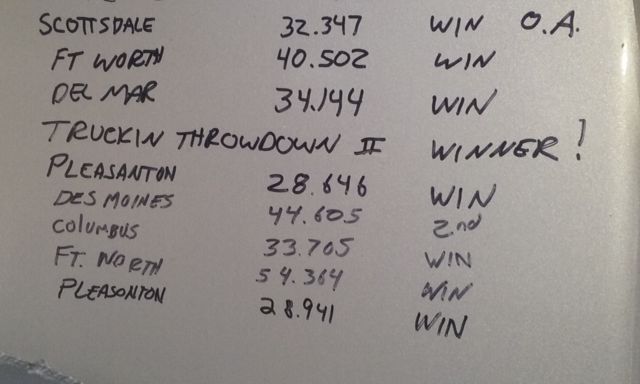 SCOTTSDALE 32.347 WIN O.A.
FT WORTH 40.502 WIN
DEL MAR 34.144 WIN
TRUCKIN THROWDOWN II WINNER!
PLEASANTON 28.646 WIN
DES MOINES 44.605 2nd
COLUMBUS 33.705 WIN
FT. WORTH 54.364 WIN
PLEASONTON 28.941 WIN